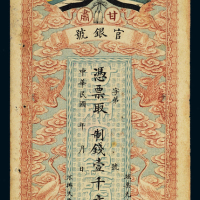 甘肅
官銀號
字第 號
憑票取制錢壹千文
中華民國 年 月 日